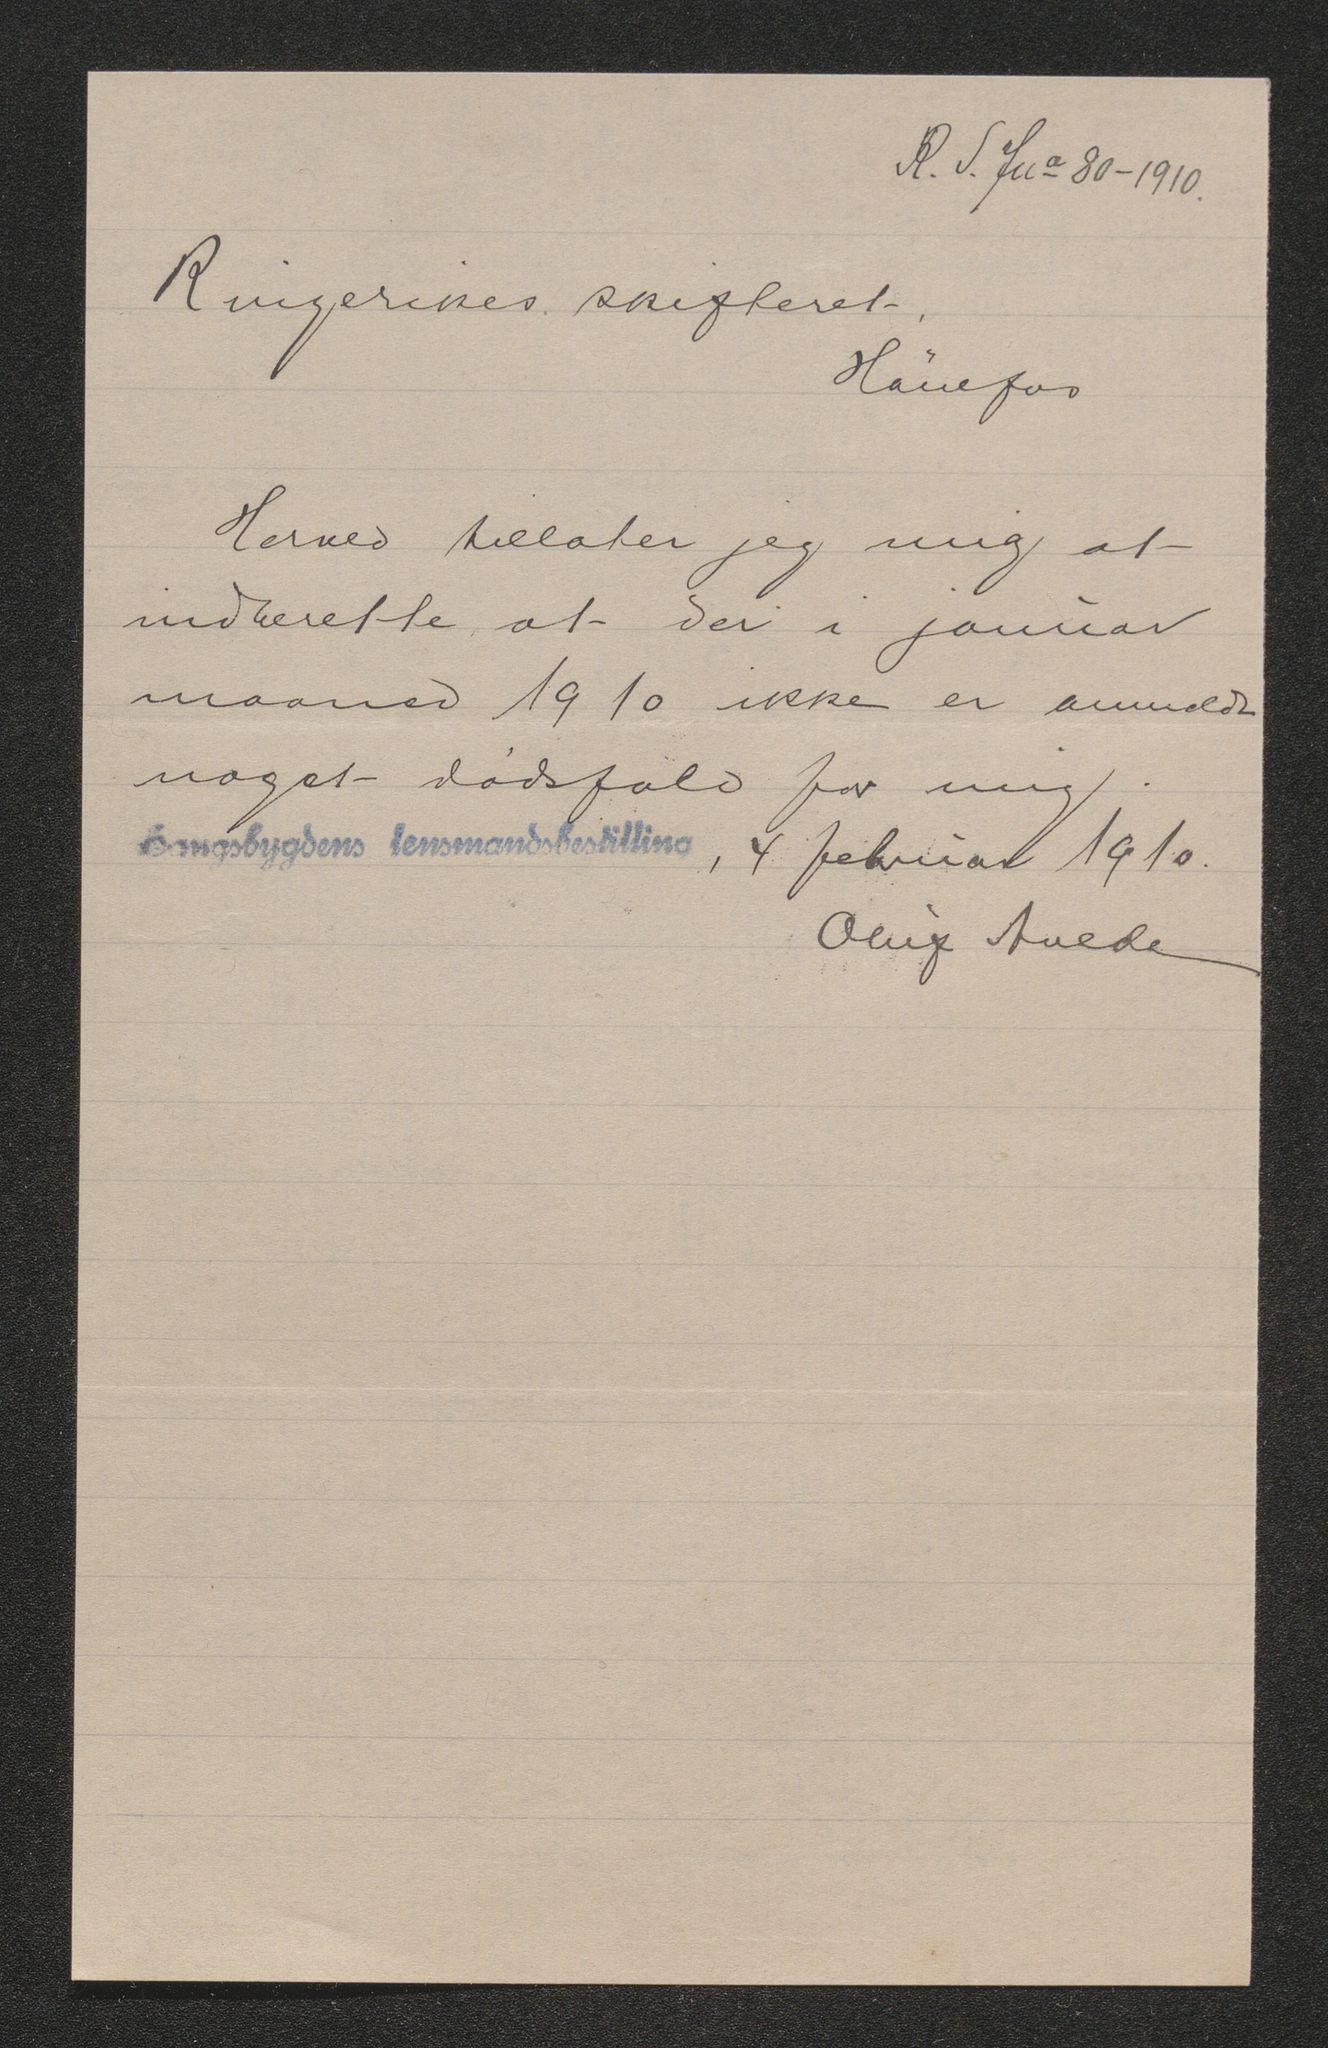 R. S. Jna 80-1910.
Ringerikes skifteret,
Hönefos
Herved tillater jeg mig at
indberette at der i januar
maaned 1910 ikke er anmeldt
noget dödsfald for mig.
Haugsbygdens lensmandsbestilling, 4 februar 1910.
Oluf